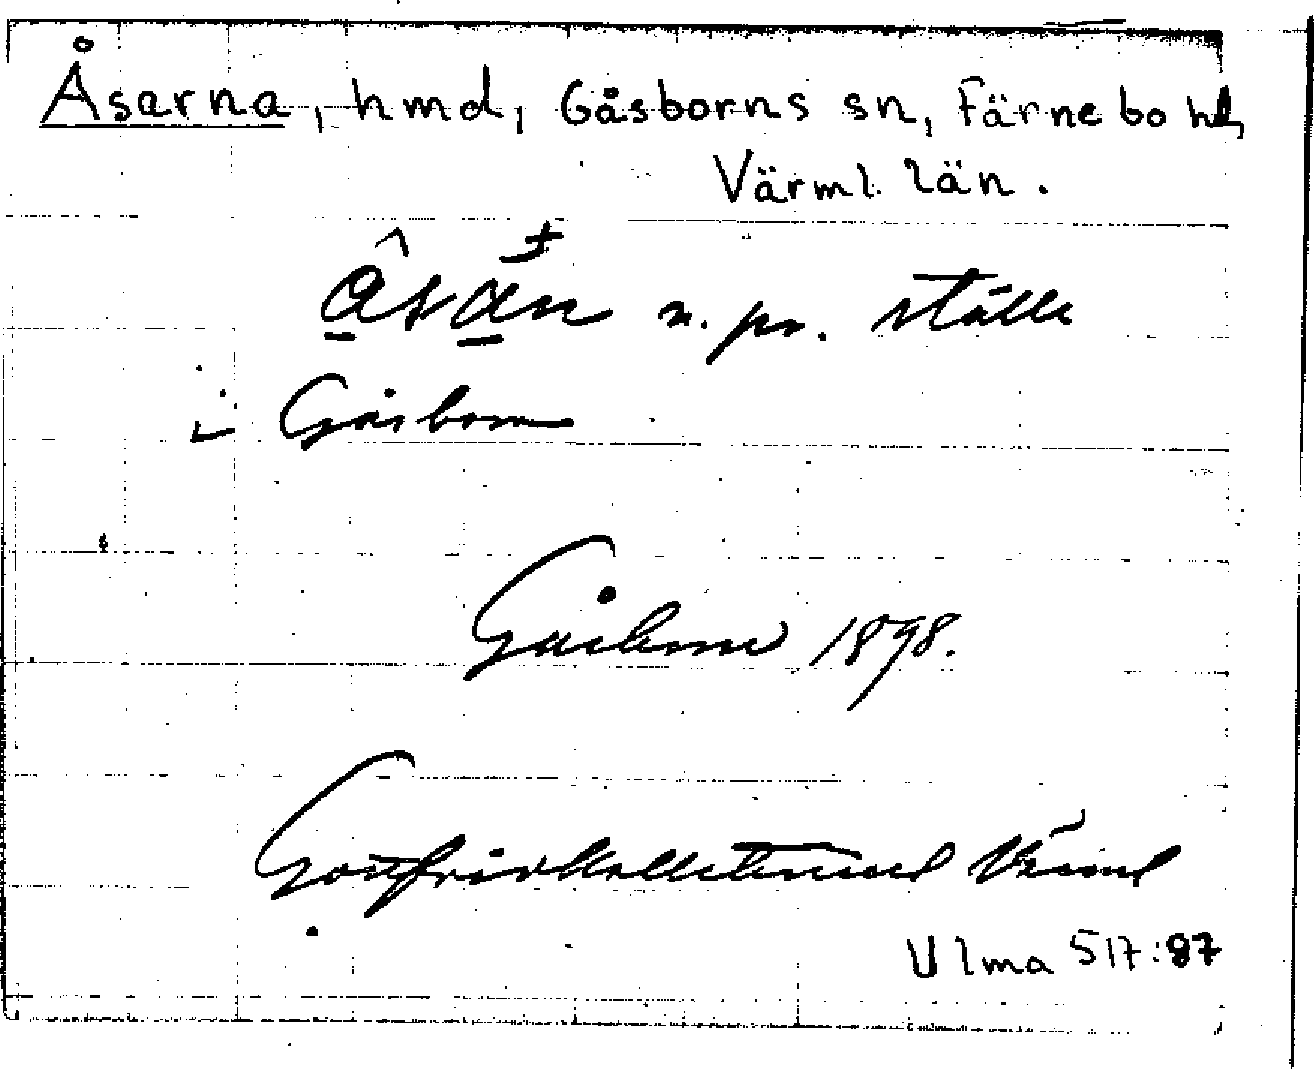 Åsarna, hmd, Gåsborns sn, Färnebo hd,
Värml. län.
n. pr. ställe
i Gåsborn
Gåsborn 1898.
Gottfrid Kallstenius Värml
Ulma 517:87